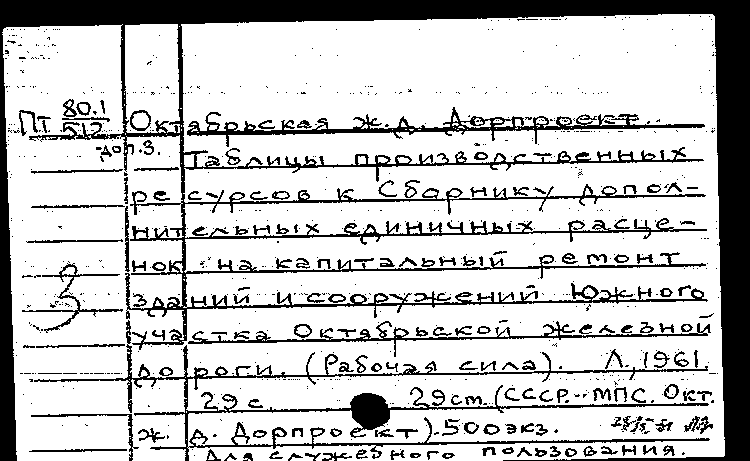 Пт 80.1 Октябрьская ж.д. Дорпроект.
512
доп.3.
Таблицы производственных
ресурсов к Сборнику допол-
нительных единичных расце-
нок на капитальный ремонт
3
зданий и сооружений Южного
участка Октябрьской железной
дороги. (Рабочая сила). Л., 1961.
29 с. 29 ст. (СССР. МПС. Окт.
ж. д. Дорпроект). 500 экз.
Для служебного пользования.